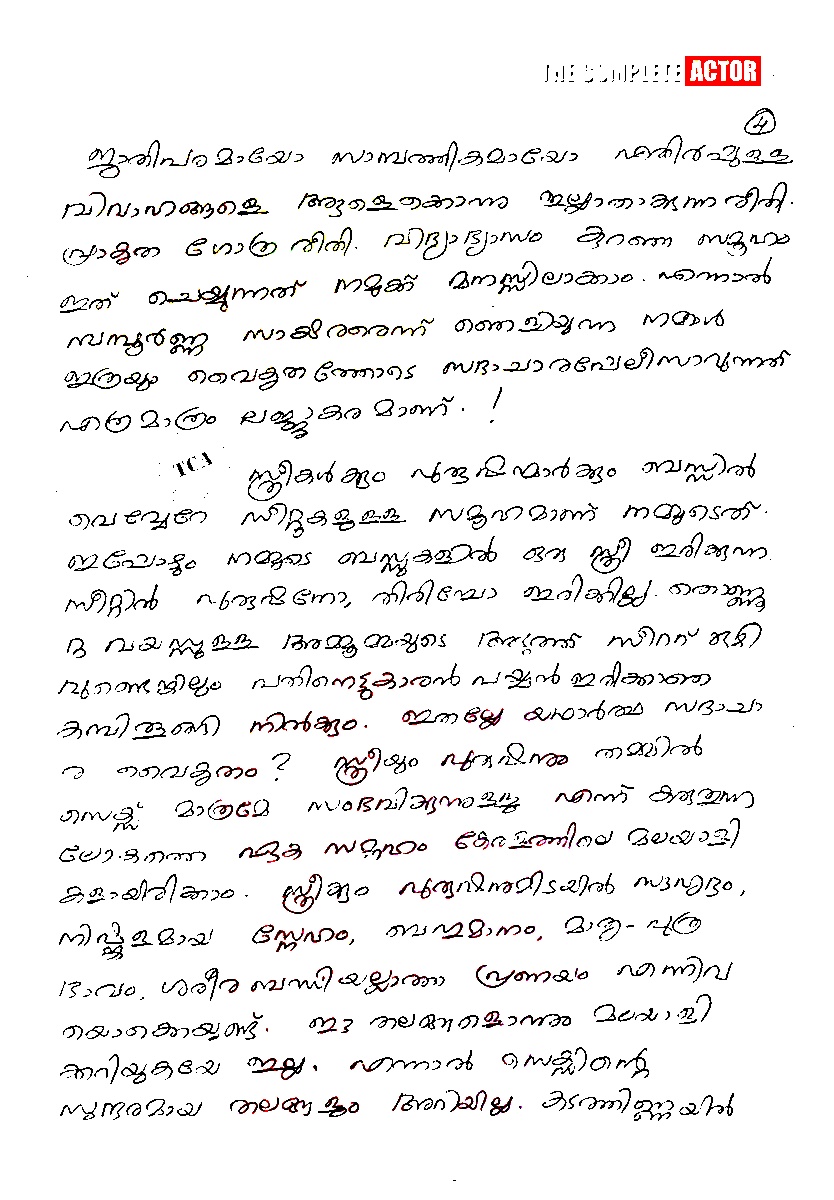 THE COMPLETE ACTOR
4
ജാതിപരമായോ സാമ്പത്തികമായോ എതിർപ്പുള്ള
വിവാഹങ്ങളെ ആളെക്കൊന്നു ഇല്ലാതാക്കുന്ന രീതി.
പ്രാകൃത ഗോത്ര രീതി. വിദ്യാഭ്യാസം കുറഞ്ഞ സമൂഹം
ഇത് ചെയ്യുന്നത് നമുക്ക് മനസ്സിലാക്കാം. എന്നാൽ
സമ്പൂർണ്ണ സാക്ഷരരെന്ന് ഞെളിയുന്ന നമ്മൾ
ഇത്രയും വൈകൃതത്തോടെ സദാചാരപ്പോലീസാവുന്നത്
എത്രമാത്രം ലജ്ജാകരമാണ്. !
TCA
സ്ത്രീകൾക്കും പുരുഷന്മാർക്കും ബസ്സിൽ
വെവ്വേറേ സീറ്റുകളുള്ള സമൂഹമാണ് നമ്മുടെത്.
ഇപ്പോഴും നമ്മുടെ ബസ്സുകളിൽ ഒരു സ്ത്രീ ഇരിക്കുന്ന
സീറ്റിൽ പുരുഷനോ, തിരിച്ചോ ഇരിക്കില്ല. തൊണ്ണൂ
റു വയസ്സുള്ള അമ്മൂമ്മയുടെ അടുത്ത് സീററ് ഒഴി
വുണ്ടെങ്കിലും പതിനെട്ടുകാരൻ പയ്യൻ ഇരിക്കാതെ
കമ്പിതൂങ്ങി നിൽക്കും. ഇതല്ലേ യഥാർത്ഥ സദാചാ
ര വൈകൃതം? സ്ത്രീയും പുരുഷനും തമ്മിൽ
സെക്സ് മാത്രമേ സംഭവിക്കുന്നുള്ളു എന്ന് കരുതുന്ന
ലോകത്തെ ഏക സമൂഹം കേരളത്തിലെ മലയാളി
കളായിരിക്കാം. സ്ത്രീക്കും പുരുഷനുമിടയിൽ സൗഹൃദം,
നിഷ്കളമായ സ്നേഹം, ബഹുമാനം, മാതൃ-പുത്ര
ഭാവം, ശരീര ബന്ധിയല്ലാത്ത പ്രണയം എന്നിവ
യൊക്കെയുണ്ട്. ഈ തലങ്ങളൊന്നും മലയാളി
ക്കറിയുകയേ ഇല്ല. എന്നാൽ സെക്സിന്റെ
സുന്ദരമായ തലങ്ങളും അറിയില്ല. കടത്തിണ്ണയിൽ